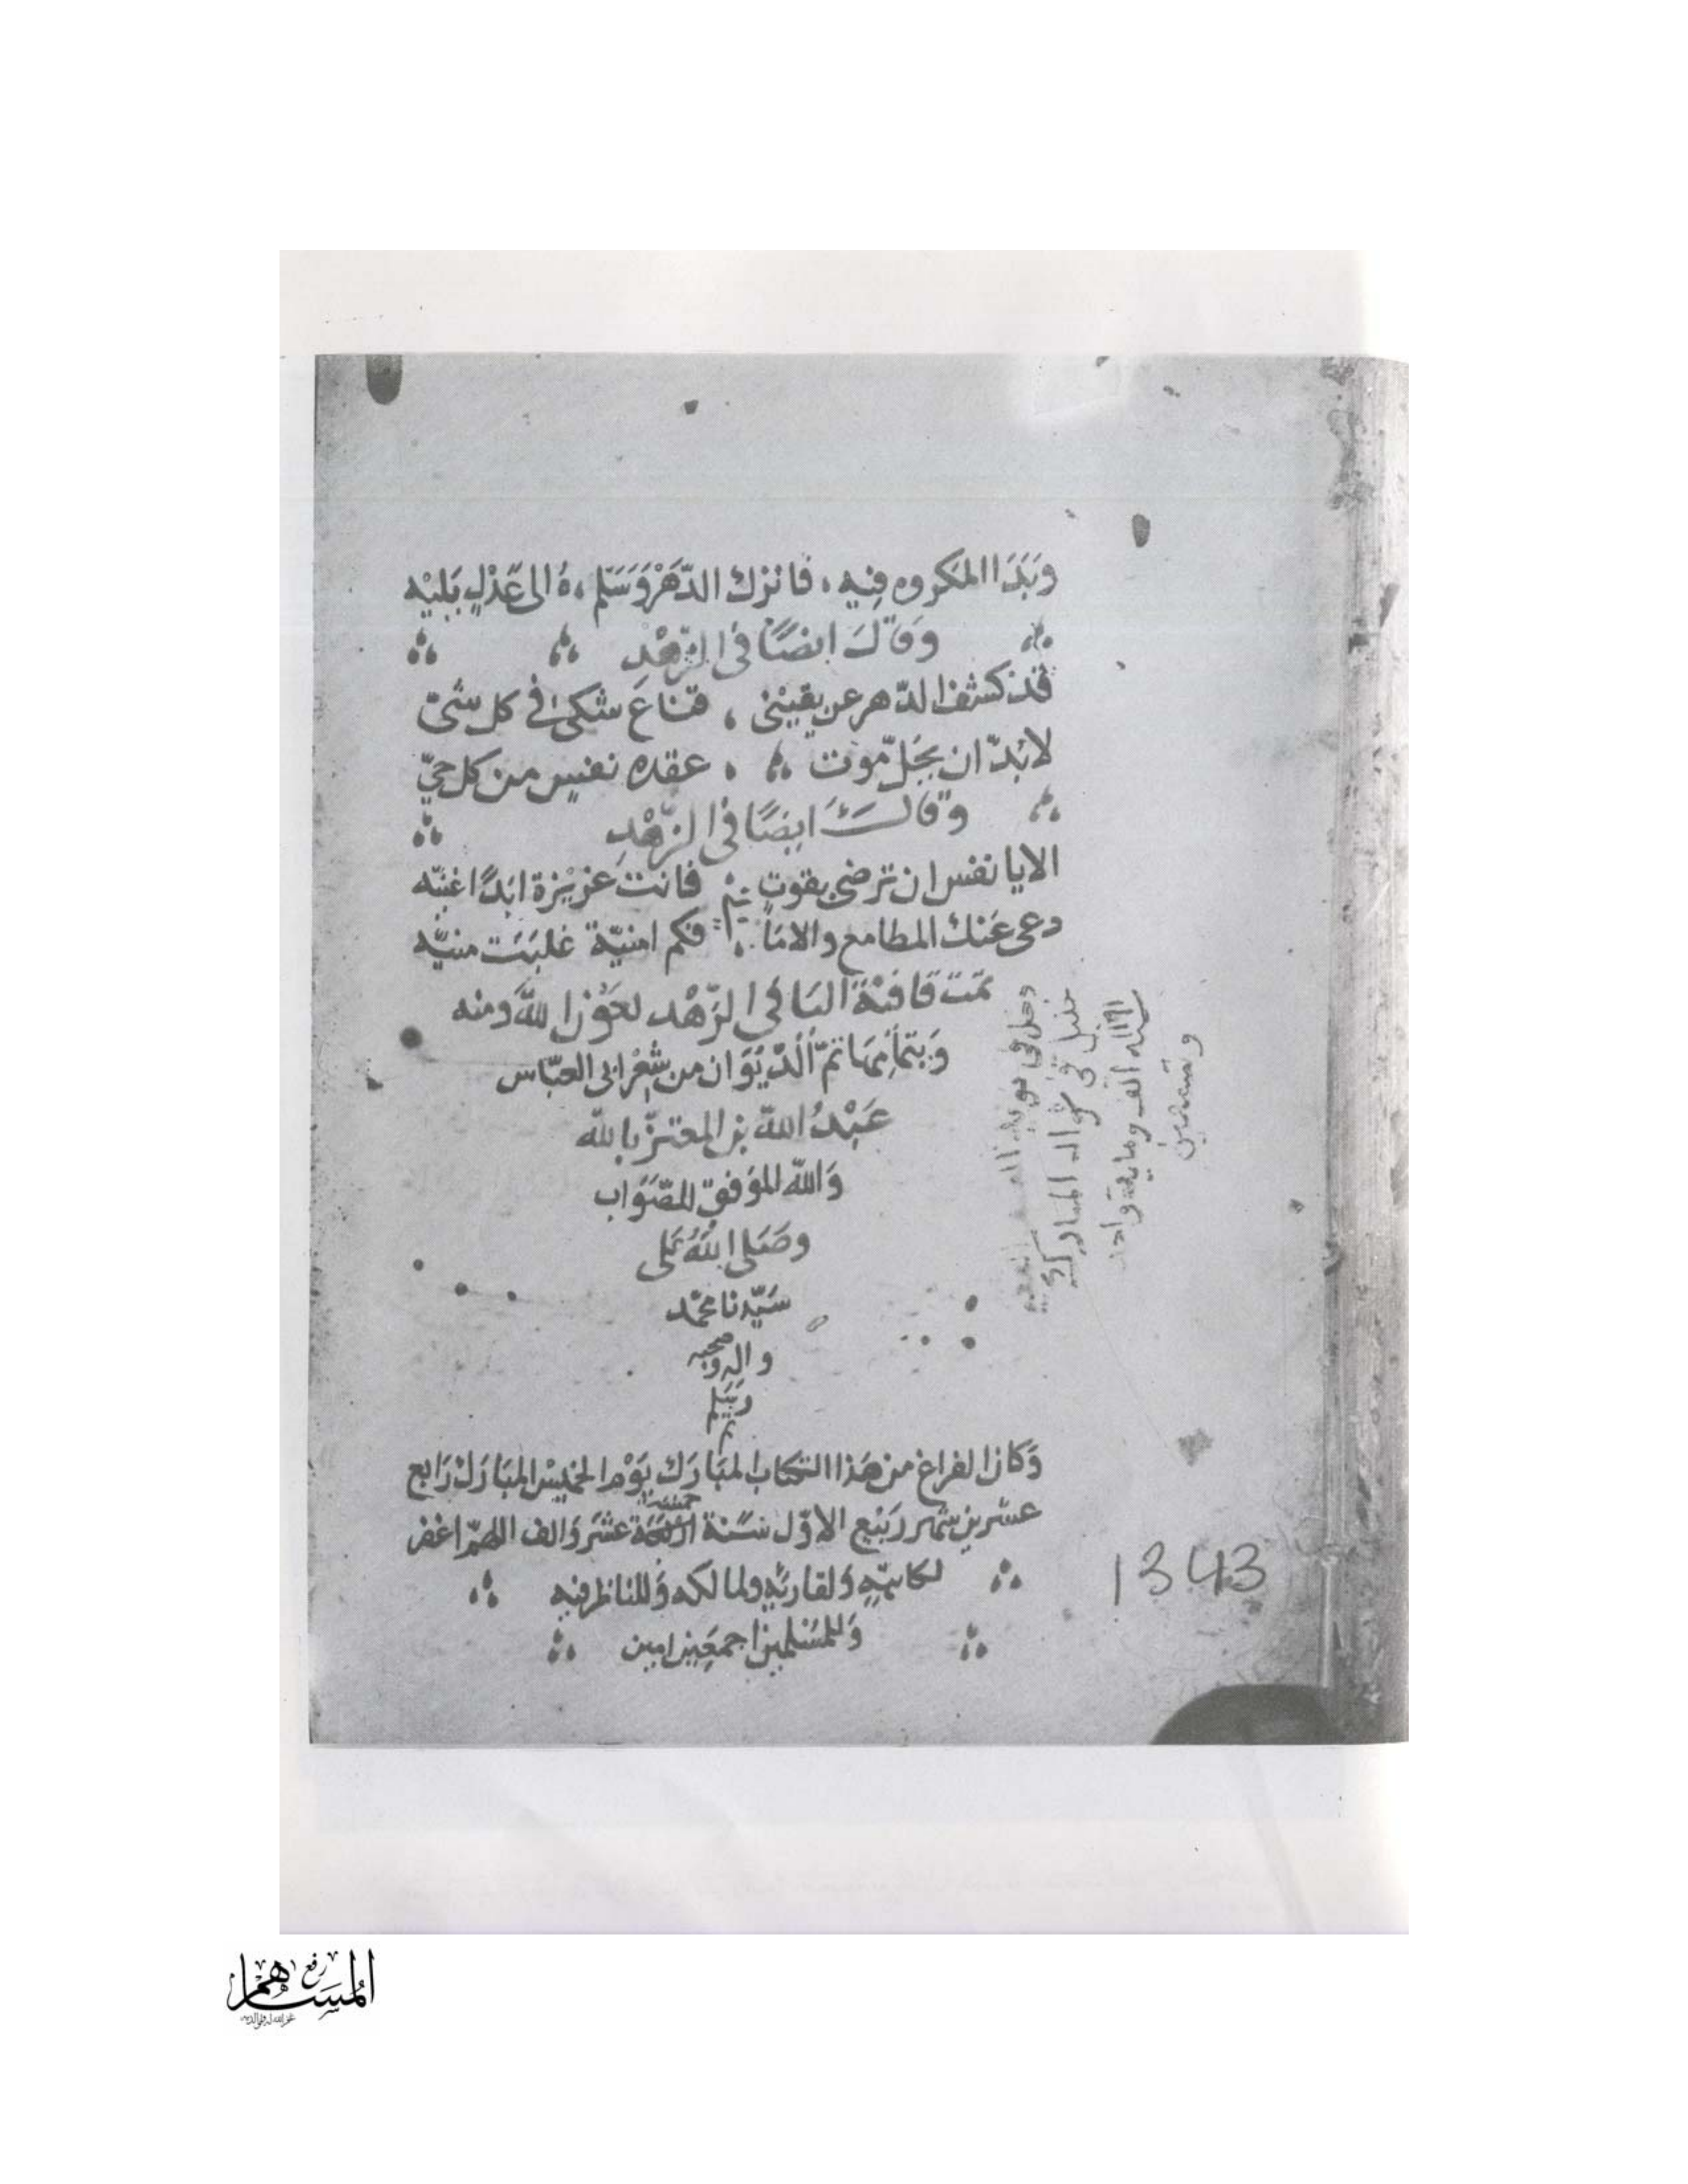 وَبَدَا المَكروه فِيه ، فاترك الدّهْرَ وَسَلّم ، هُ الى عَدْلٍ يَليْه
وَقَالَ ايضًا فى الزّهْدِ
قَد كشف الدّهر عن يقينى ، قناعَ شكى فى كل شىّ
لا بُدّ ان يحَلّ موت ، عقده نفسٍ من كل حىّ
وقالَ ايضًا فى الزّهْدِ
الا يا نفس ان ترضى بقوت فانت عزيْزة ابَدًا غنيّه
دعى عَنك المطامع والامَا فكم امنيّة غلبَت منيّه
تمّت قافيَة اليَا فى الزّهْد بعَوْن اللّه ومنه
وَبتمَامِهَا تمّ الدّيوَان من شِعْر ابى العبّاس
عَبْدُ اللّه بن المعتزّ باللّه
وَاللّه الموَفق للصّوَاب
وصَلى اللّهُ عَلى
سَيّدنا محمّد
واله وصحبه
وَسَلم
وَكان الفراغ من هَذا الكتاب المبَارَك يَوْم الخميْس المبَارَك رَابع
عشرين شهر رَبيْع الاوّل سَنة خمسة عشَر وَالف اللهمّ اغفر
لكاتبهِ وَلقارئهِ ولمالكه وَللناظر فيه
وَللمسْلمين اجمَعِين امين
دخل فى
فى شوال المبارك
سنة ١١٩١ الف وماية واحد
وتسعين
1343
المساهم
رفع
غفر الله له ولوالديه